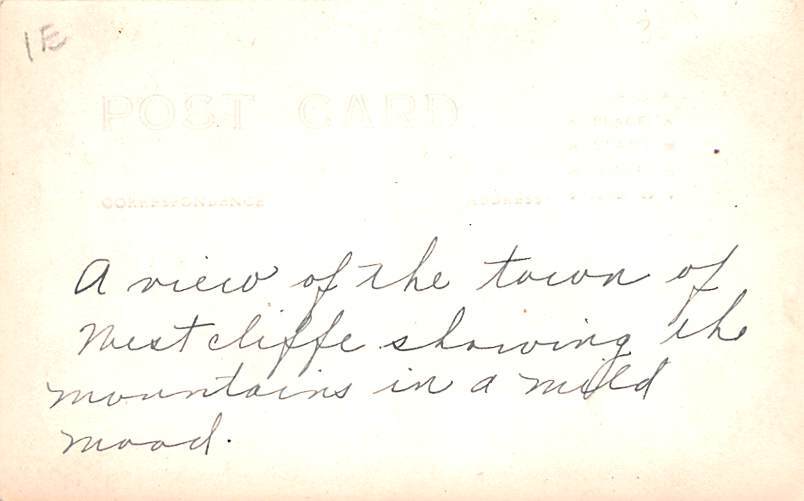 1E
POST CARD
PLACE
STAMP
CORRESPONDENCE
ADDRESS
A view of the town of
Westcliffe showing the
mountains in a mild
mood.